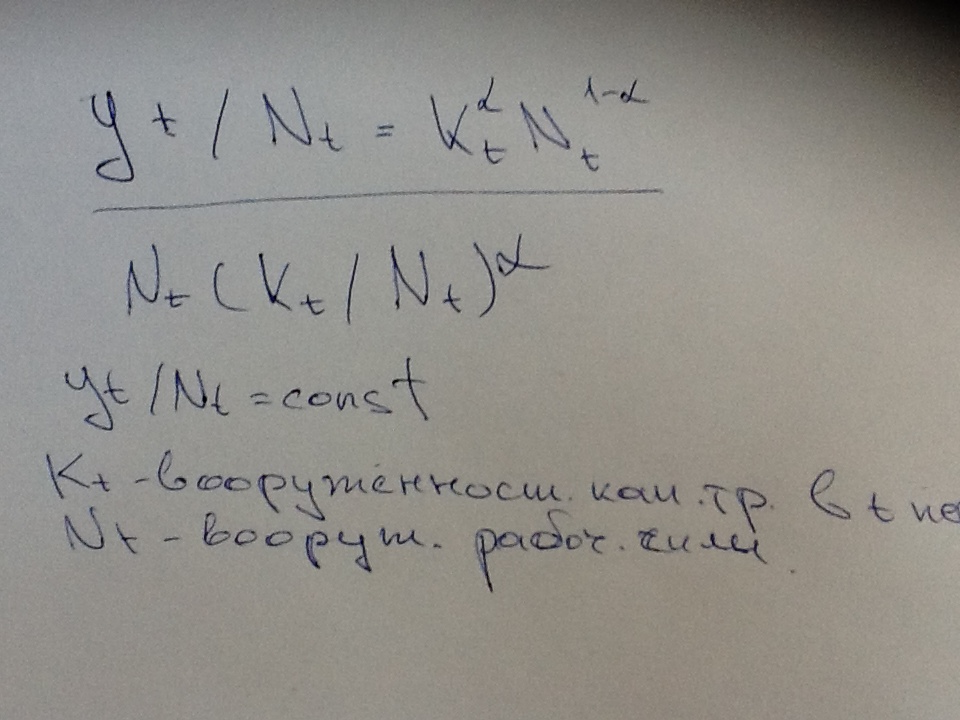 yt / Nt = Kt^α Nt^1-α
Nt (Kt / Nt)^α
yt / Nt = const
Kt - вооруженност. кап. тр. в t пе
Nt - вооруж. рабоч. силы.